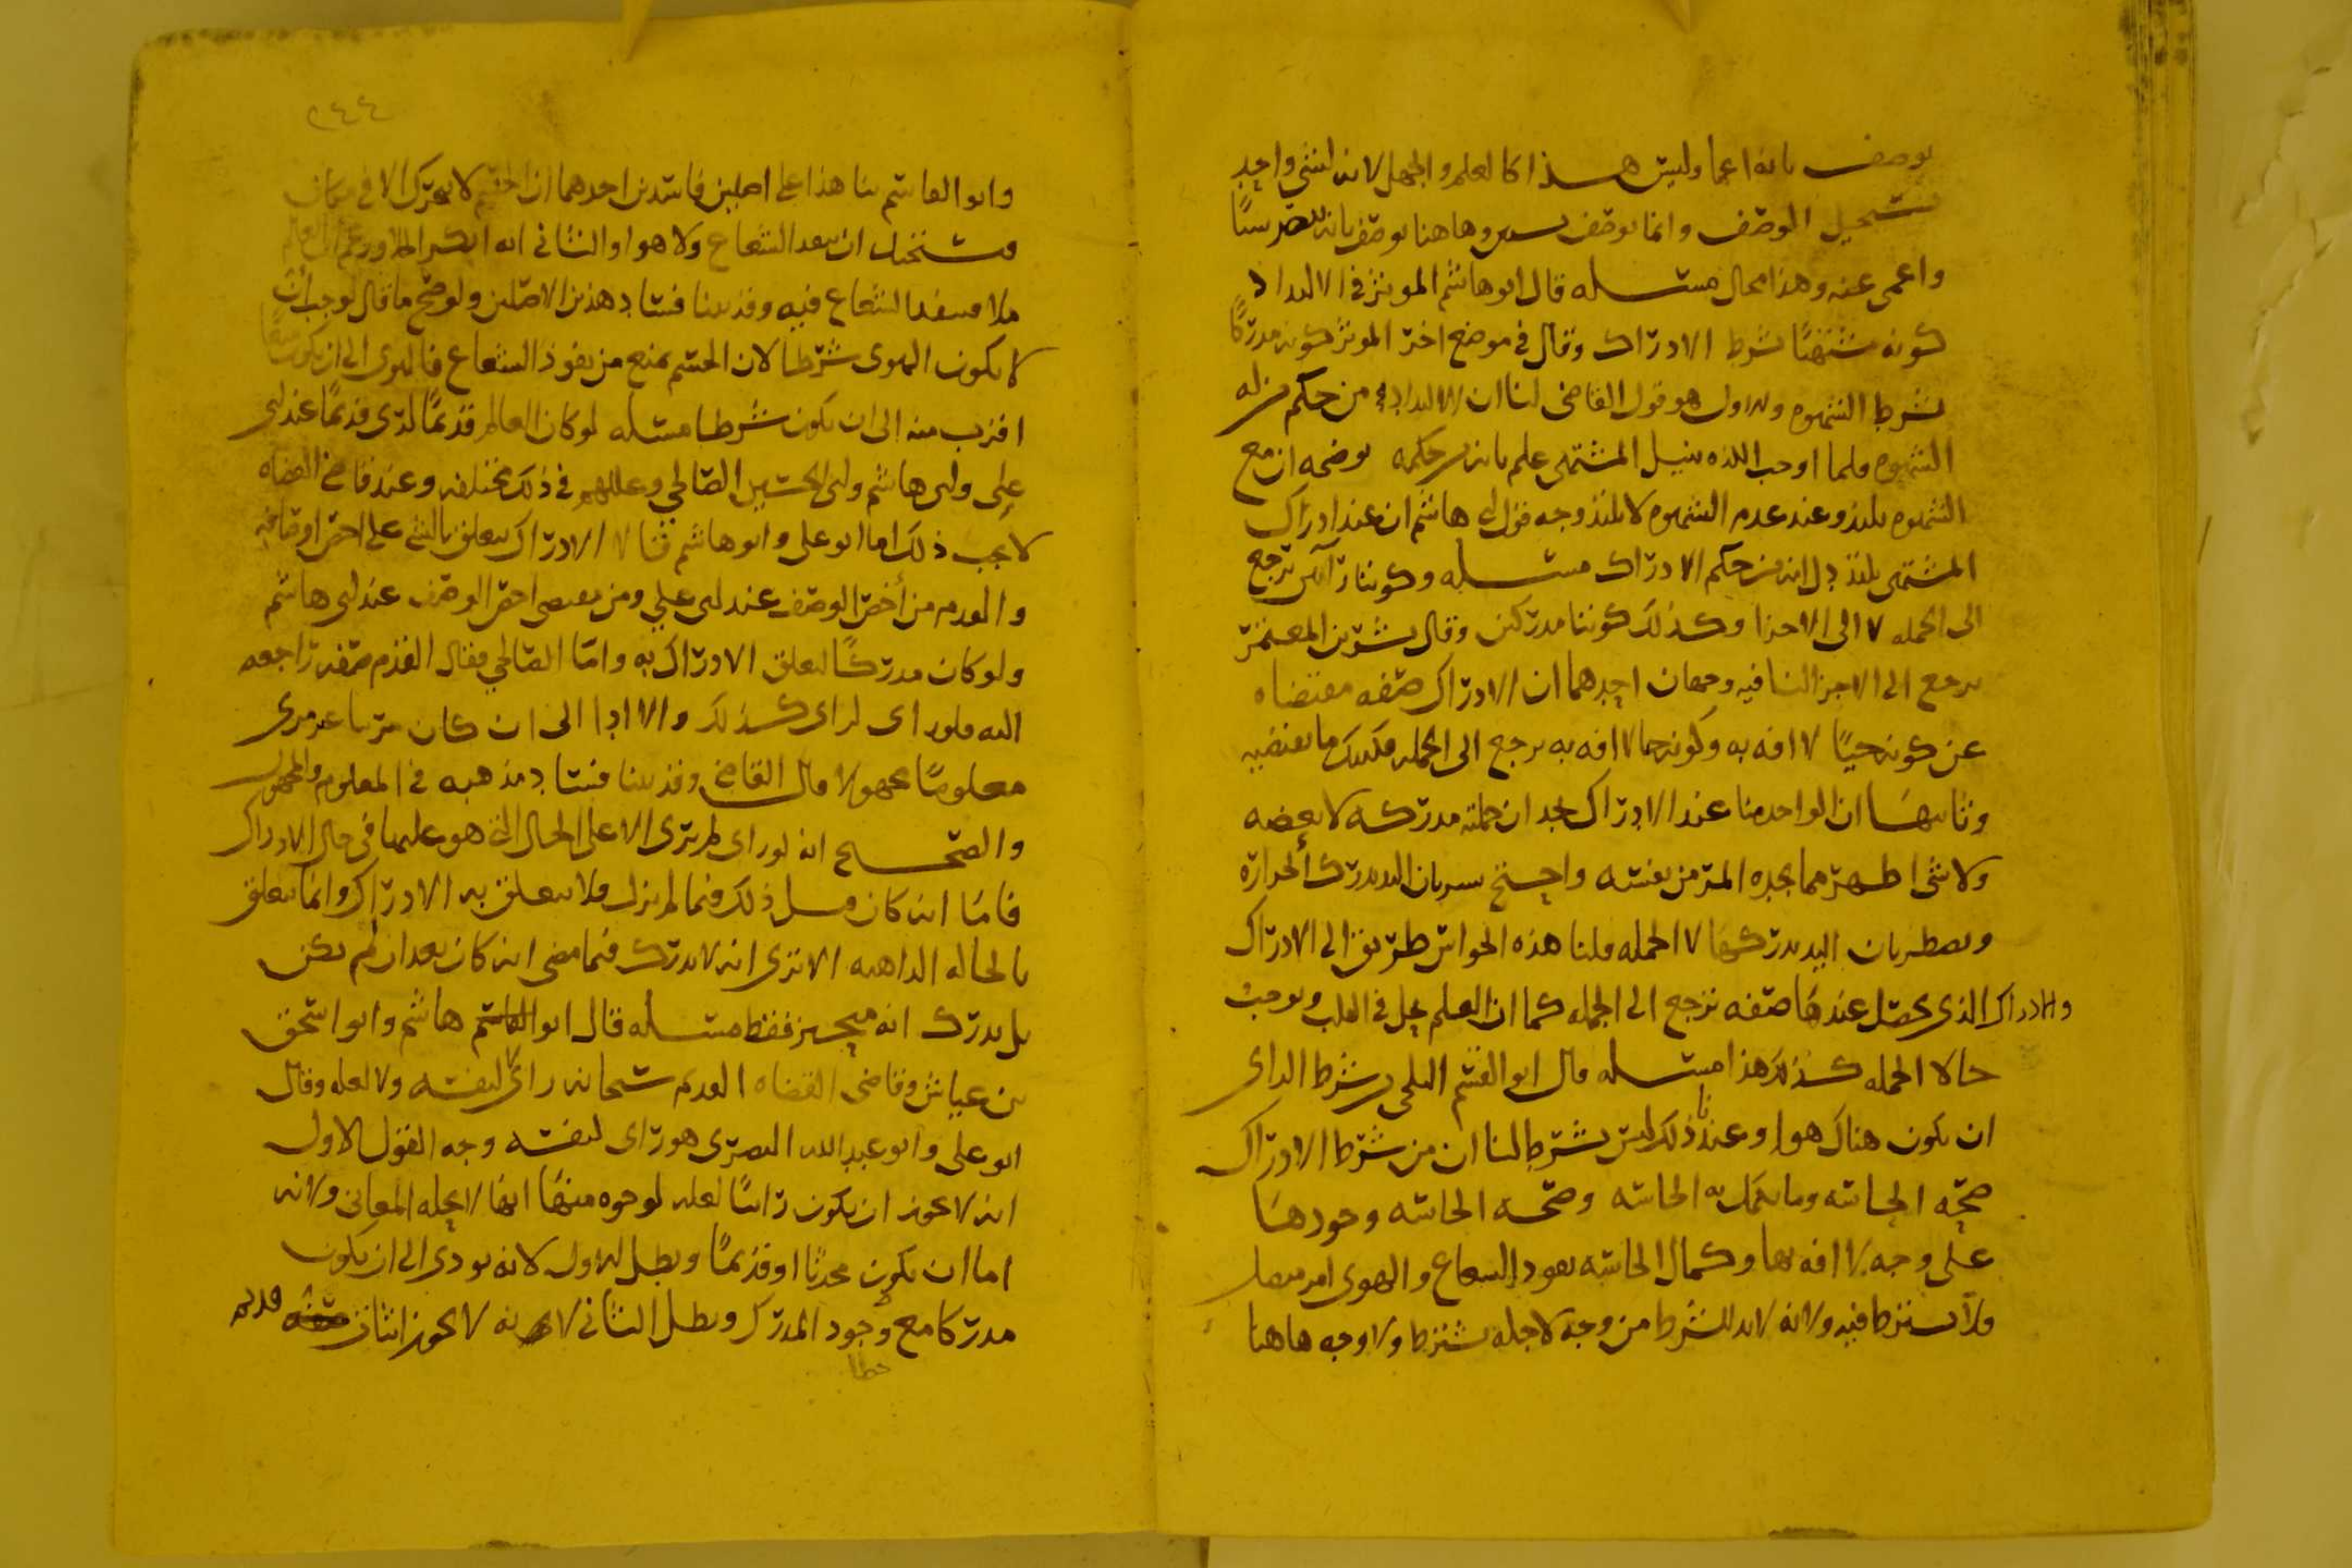 يوصف بانه اعما وليس هذا كالعلم والجهل لانه لشي واحد
يستحيل الوصف وانما يوصف وهاهنا يوصف بانه بصر شيئًا
واعمى عنه وهذا محال مسئلة قال ابو هاشم الموثر في الالتداد
كونه مشتهيًا بشرط الادراك وقال في موضع اخر الموثر كونه مدركًا
بشرط الشهوه والاول هو قول القاضي لنا ان الالتداد من حكم
الشهوه فلما اوجب اللذه بنيل المشتهى علم بانه حكمه يوضحه ان مع
الشهوه يلتذ وعند عدم الشهوه لا يلتذ وجه قول ابي هاشم ان عند ادراك
المشتهى يلتذ دل انه من حكم الادراك مسئله وكوننا رآئين يرجع
الى الجمله لا الى الاجزا وكذلك كوننا مدركين وقال بشر بن المعتمر
يرجع الى الاجزا لنا فيه وجهان احدهما ان الادراك صفه مقتضاه
عن كونه حيًا لا افه به وكونه حيا لا افه به يرجع الى الجمله فكذلك ما يقتضيه
وثانيها ان الواحد منا عند الادراك يجد ان جملته مدركه لا بعضه
ولا شى اظهر مما يجده المر من نفسه واحتج بشر بان اليد يدرك الحراره
وبصطر بان اليد يدركها لا الجمله قلنا هذه الحواس طريق الى الادراك
والادراك الذي يحصل عندها صفه ترجع الى الجمله كما ان العلم يحل في القلب ويوجب
حالا للجمله كذلك هذا مسئله قال ابو القسم البلخي من شرط الراى
ان يكون هناك هوا وعندنا ذلك ليس بشرط لنا ان من شرط الادراك
صحه الحاسه وما يكمل به الحاسه وصحه الحاسه وجودها
على وجه لا افه بها وكمال الحاسه نفود الشعاع والهوى امر منفصل
ولا يشترط فيه ولانه لابد للشرط من وجه لاجله يشترط ولا وجه هاهنا
٢٤٤
وابو القاسم بنا هذا على اصلين فاسدين احدهما ان الجسم لا يتحرك الا في مكان
فيستحيل ان ينفد الشعاع ولا هوا والثاني انه
فلا ينفد الشعاع فيه وقد بينا فساد هذين الاصلين ولو صح ما قال لوجب ان
لا يكون الهوى شرطا لان الجسم يمنع من نفوذ الشعاع فالهوى الى ان يكون
اقرب منه الى ان يكون شرطا مسئله لو كان العالم قديمًا لرى قديمًا عند ابي
على وابى هاشم وابى الحسين الصالحي وعللهم في ذلك مختلفه وعند قاضي القضاه
لا يجب ذلك اما ابو على وابو هاشم فقالا الادراك يتعلق بالشي على اخص اوصافه
والقدم من أخص الوصف عند ابى علي ومن مقتضى اخص الوصف عند ابى هاشم
ولو كان مدركًا لتعلق الادراك به واما الصالحي فقال القدم صفه راجعه
اليه فلو راى لراى كذلك والا ادا الى ان كان مرييا غير مرى
معلومًا مجهولا قال القاضي وقد بينا فساد مذهبه في المعلوم والمجهول
والصحيح انه لو راى لم يرى الا على الحال التي هو عليها في حال الادراك
فامّا انه كان قبل ذلك فيما لم يزل فلا يتعلق به الادراك وانما يتعلق
بالحاله الراهنه الا ترى انه لا يدرك فيما مضى انه كان بعد ان لم يكن
بل يدرك انه متحيز فقط مسئله قال ابو القاسم هاشم وابو اسحق
بن عياش وقاضي القضاه القديم سبحانه راى لا لنفسه ولا لعله وقال
ابو على وابو عبد الله البصرى هو راى لنفسه وجه القول الاول
انه لا يجوز ان يكون رائيًا لعله لوجوه منها انها لا يحله المعاني ولانه
اما ان يكون محدثا او قديمًا وبطل الاول لانه يودى الى ان يكون
مدركا مع وجود المدرك وبطل الثاني لانه لا يجوز اثبات صفه قديمه
خطا